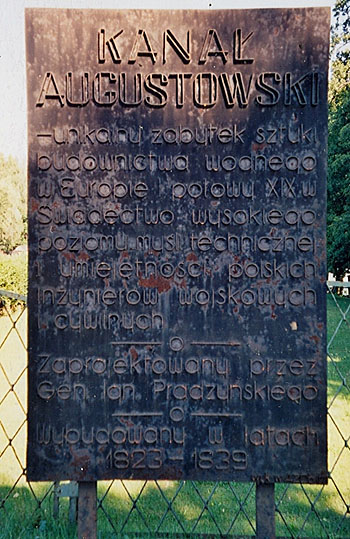 KANAŁ
AUGUSTOWSKI
-unikalny zabytek sztuki
budownictwa wodnego
w Europie I połowy XIX w
Świadectwo wysokiego
poziomu myśli technicznej
i umiejętności polskich
inżynierów wojskowych
i cywilnych
Zaprojektowany przez
Gen. Ign. Prądzyńskiego
Wybudowany w latach
1823-1839